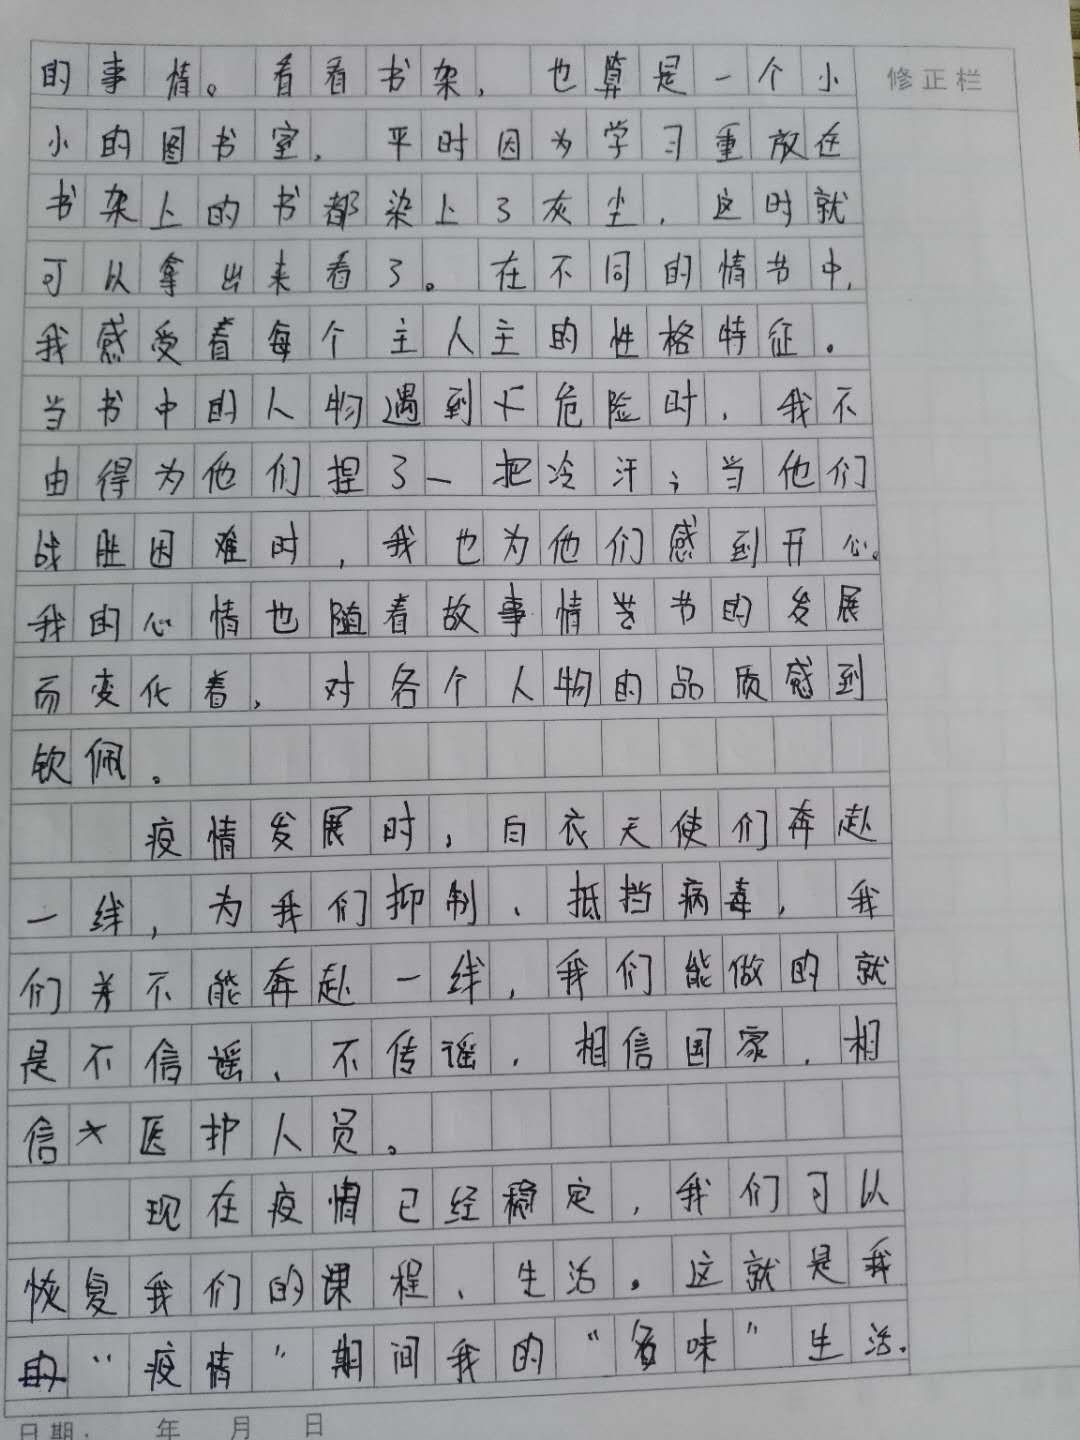 的事情。看看书架，也算是一个小
修正栏
小的图书室，平时因为学习重放在
书架上的书都染上了灰尘，这时就
可以拿出来看了。在不同的情节中，
我感受着每个主人主的性格特征。
当书中的人物遇到下危险时，我不
由得为他们捏了一把冷汗；当他们
战胜困难时，我也为他们感到开心。
我的心情也随着故事情节的发展
而变化着，对各个人物的品质感到
钦佩。
疫情发展时，白衣天使们奔赴
一线，为我们抑制、抵挡病毒，我
们并不能奔赴一线，我们能做的就
是不信谣、不传谣，相信国家，相
信医护人员。
现在疫情已经稳定，我们可以
恢复我们的课程、生活。这就是我
的“疫情”期间我的“多味”生活。
日期： 年 月 日